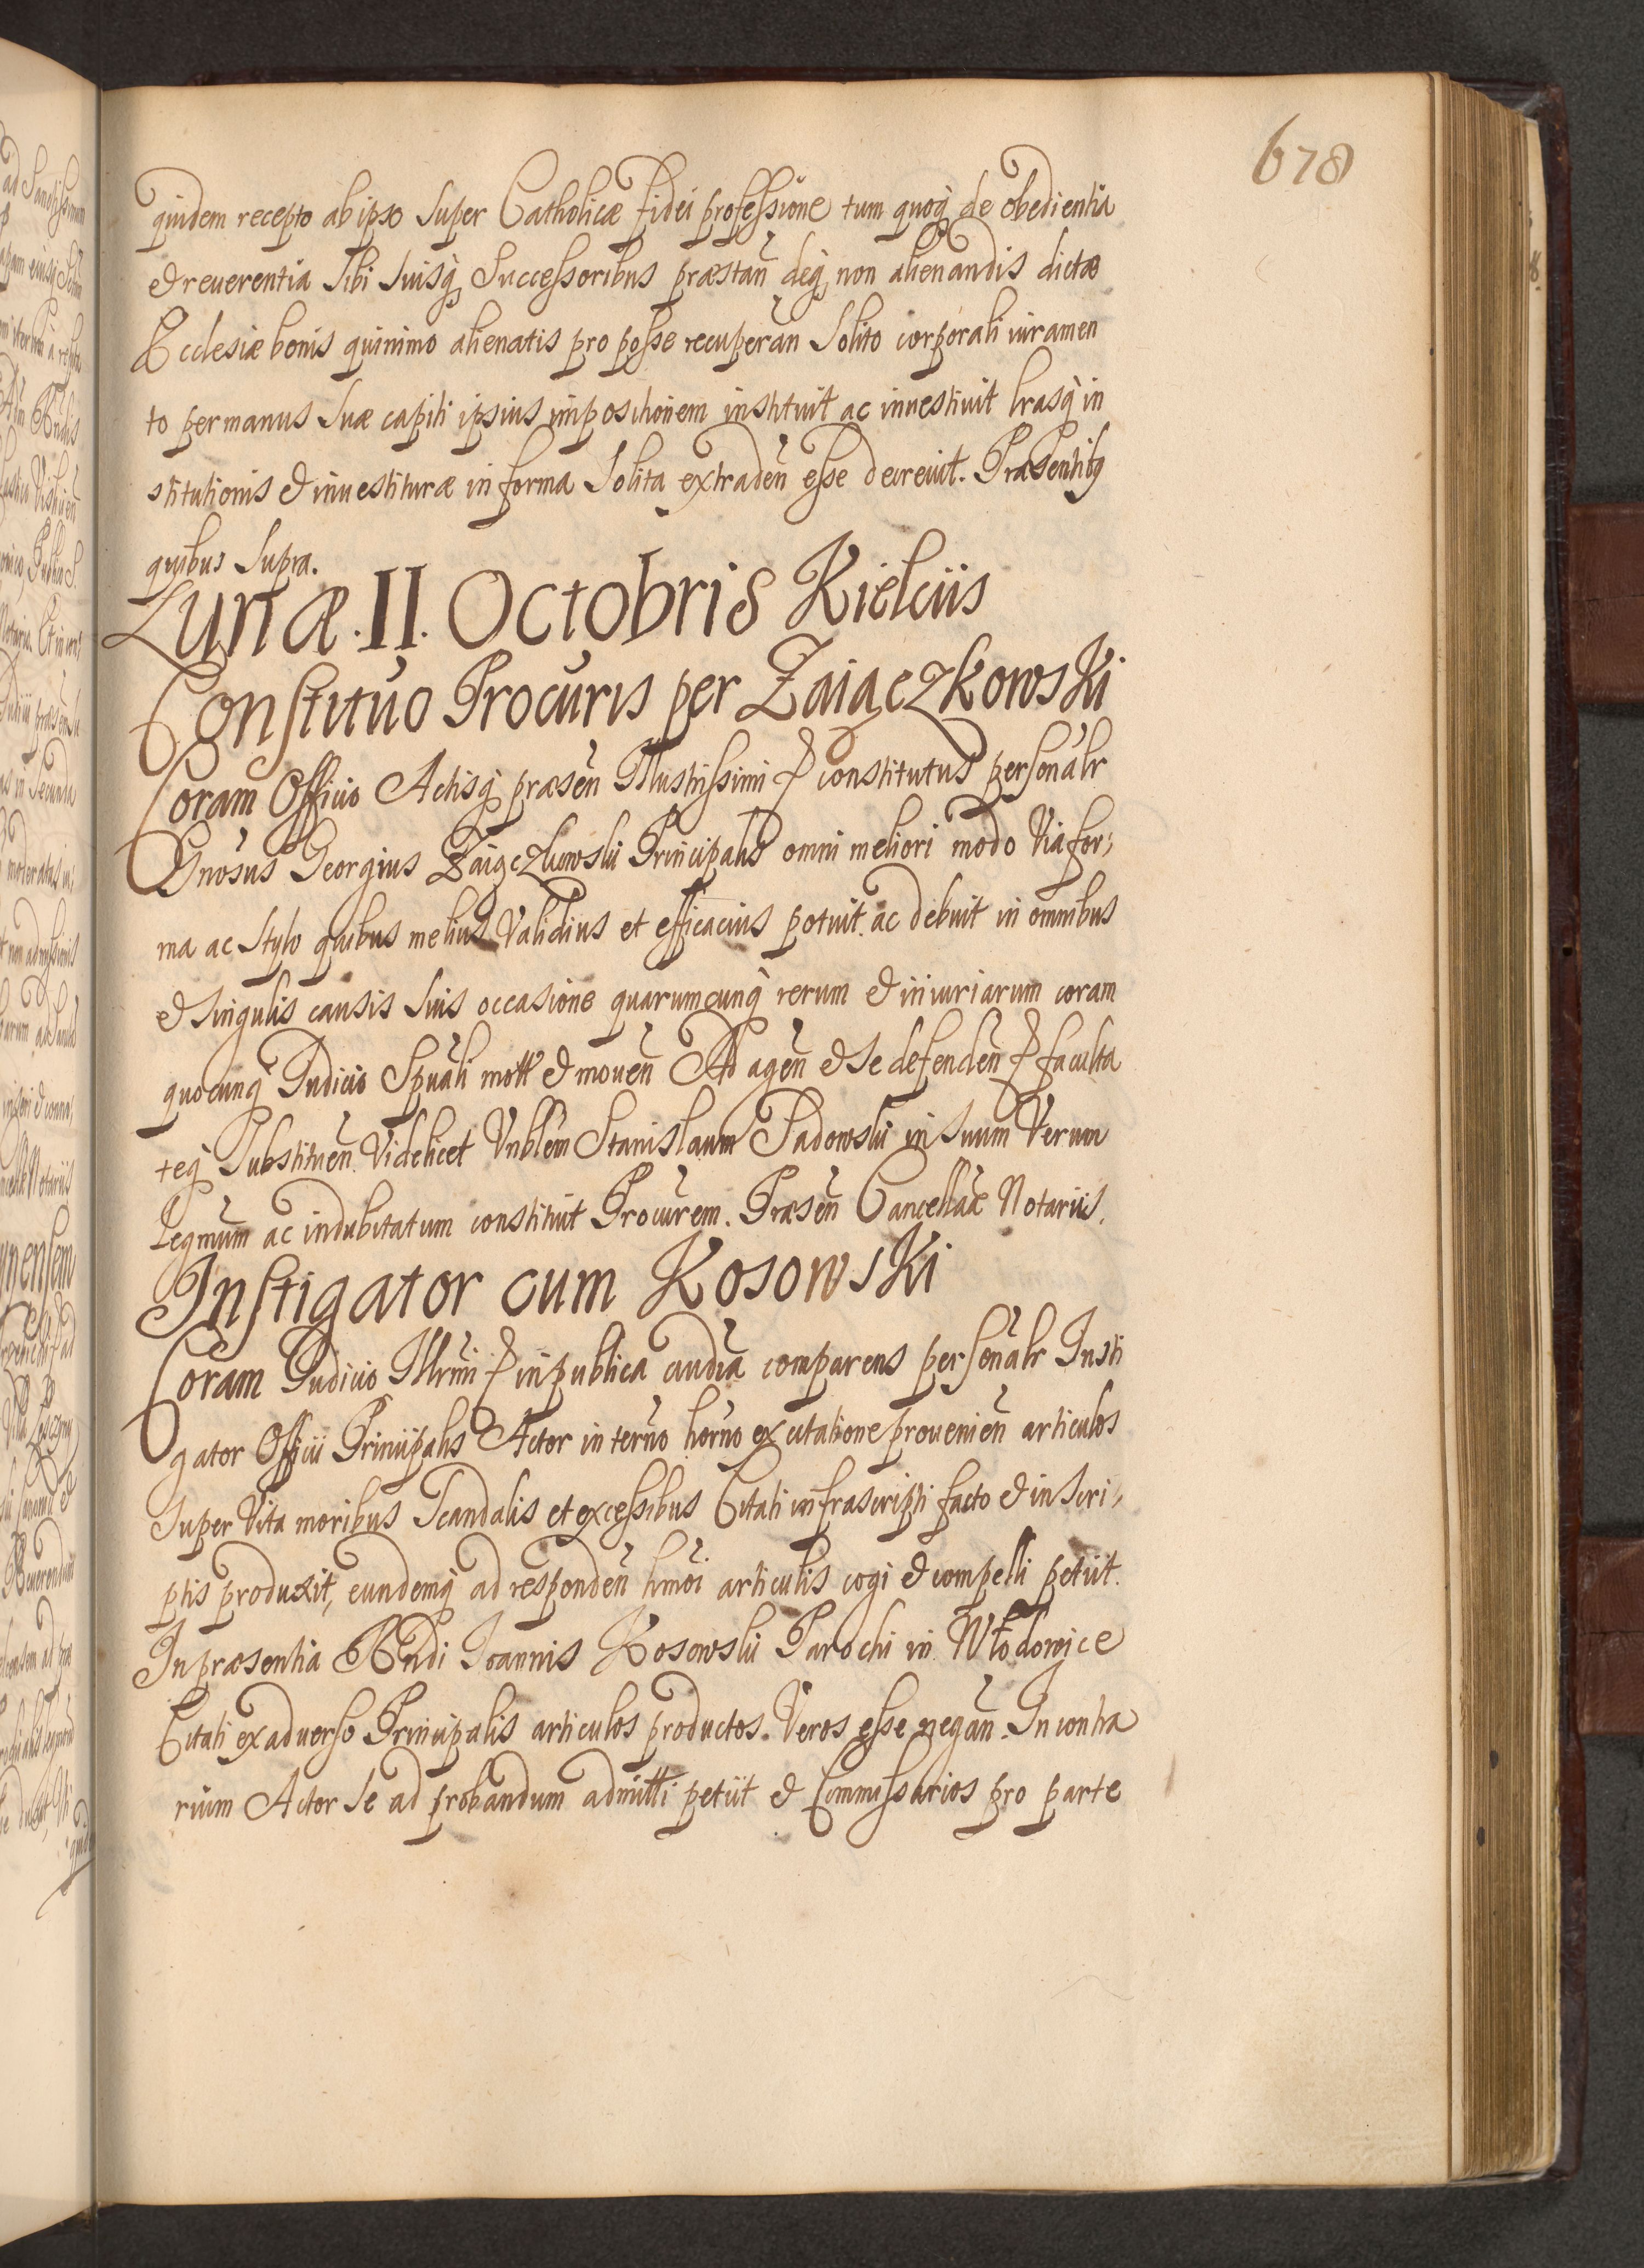 678
quidem recepto ab ipso super Catholicæ fidei professione tum quoq̀ de obedientia
et reuerentia sibi suisq̀ Successoribus præstan̄ deq̀ non alienandis dictæ
Ecclesiæ bonis quinimo alienatis pro posse recuperan̄ solito corporali iuramen
to per manus suæ capiti ipsius impositionem instituit ac inuestiuit lrasq̀ in
stitutionis et inuestituræ in forma solita extraden̄ esse decreuit. Præsentibq
quibus supra.
Lunæ .II. Octobris Kielciis
Constituo Procuris per Zaiączkowski
Coram Officio Actisq̀ præsen̄ Illustrissimi & constitutus personalr
Gnosus Georgius Zaiączkowski Principalis omni meliori modo via for,
ma ac stylo quibus melius validius et efficacius potuit ac debuit in omnibus
et singulis causis suis occasione quarumcunq̀ rerum et iniuriarum coram
quocunq̀ Judicio Spuali mott et mouen̄ Ad agen̄ et se defenden̄ & faculta
teq̀ substituen̄ videlicet Vnblem Stanislaum Padowski in suum verum
Legmum ac indubitatum constituit Procurem. Præsen̄ Cancellae Notariis.
Instigator cum Kosowski
Coram Judicio Illrmi & in publica audia comparens personalr Insti
gator Officii Principalis Actor in terno horno ex citatione prouenien̄ articulos
super vita moribus scandalis et excessibus Citati infrascripti facto et in scri,
ptis produxit, eundemq̀ ad responden̄ hmoi articulis cogi et compelli petiit.
In præsentia Rndi Joannis Kosowski Parochi in Włodowice
Citati ex aduerso Principalis articulos productos. Veros esse negan̄. In contra
rium Actor se ad probandum admitti petiit et Commissarios pro parte